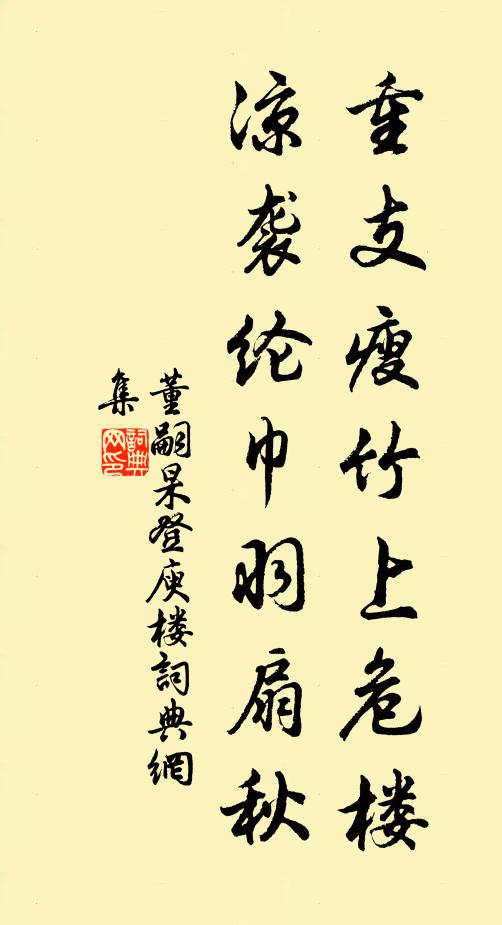 重支瘦竹上危楼
凉袭纶巾羽扇秋
董嗣杲登庾楼詞典網
集
詞典网印